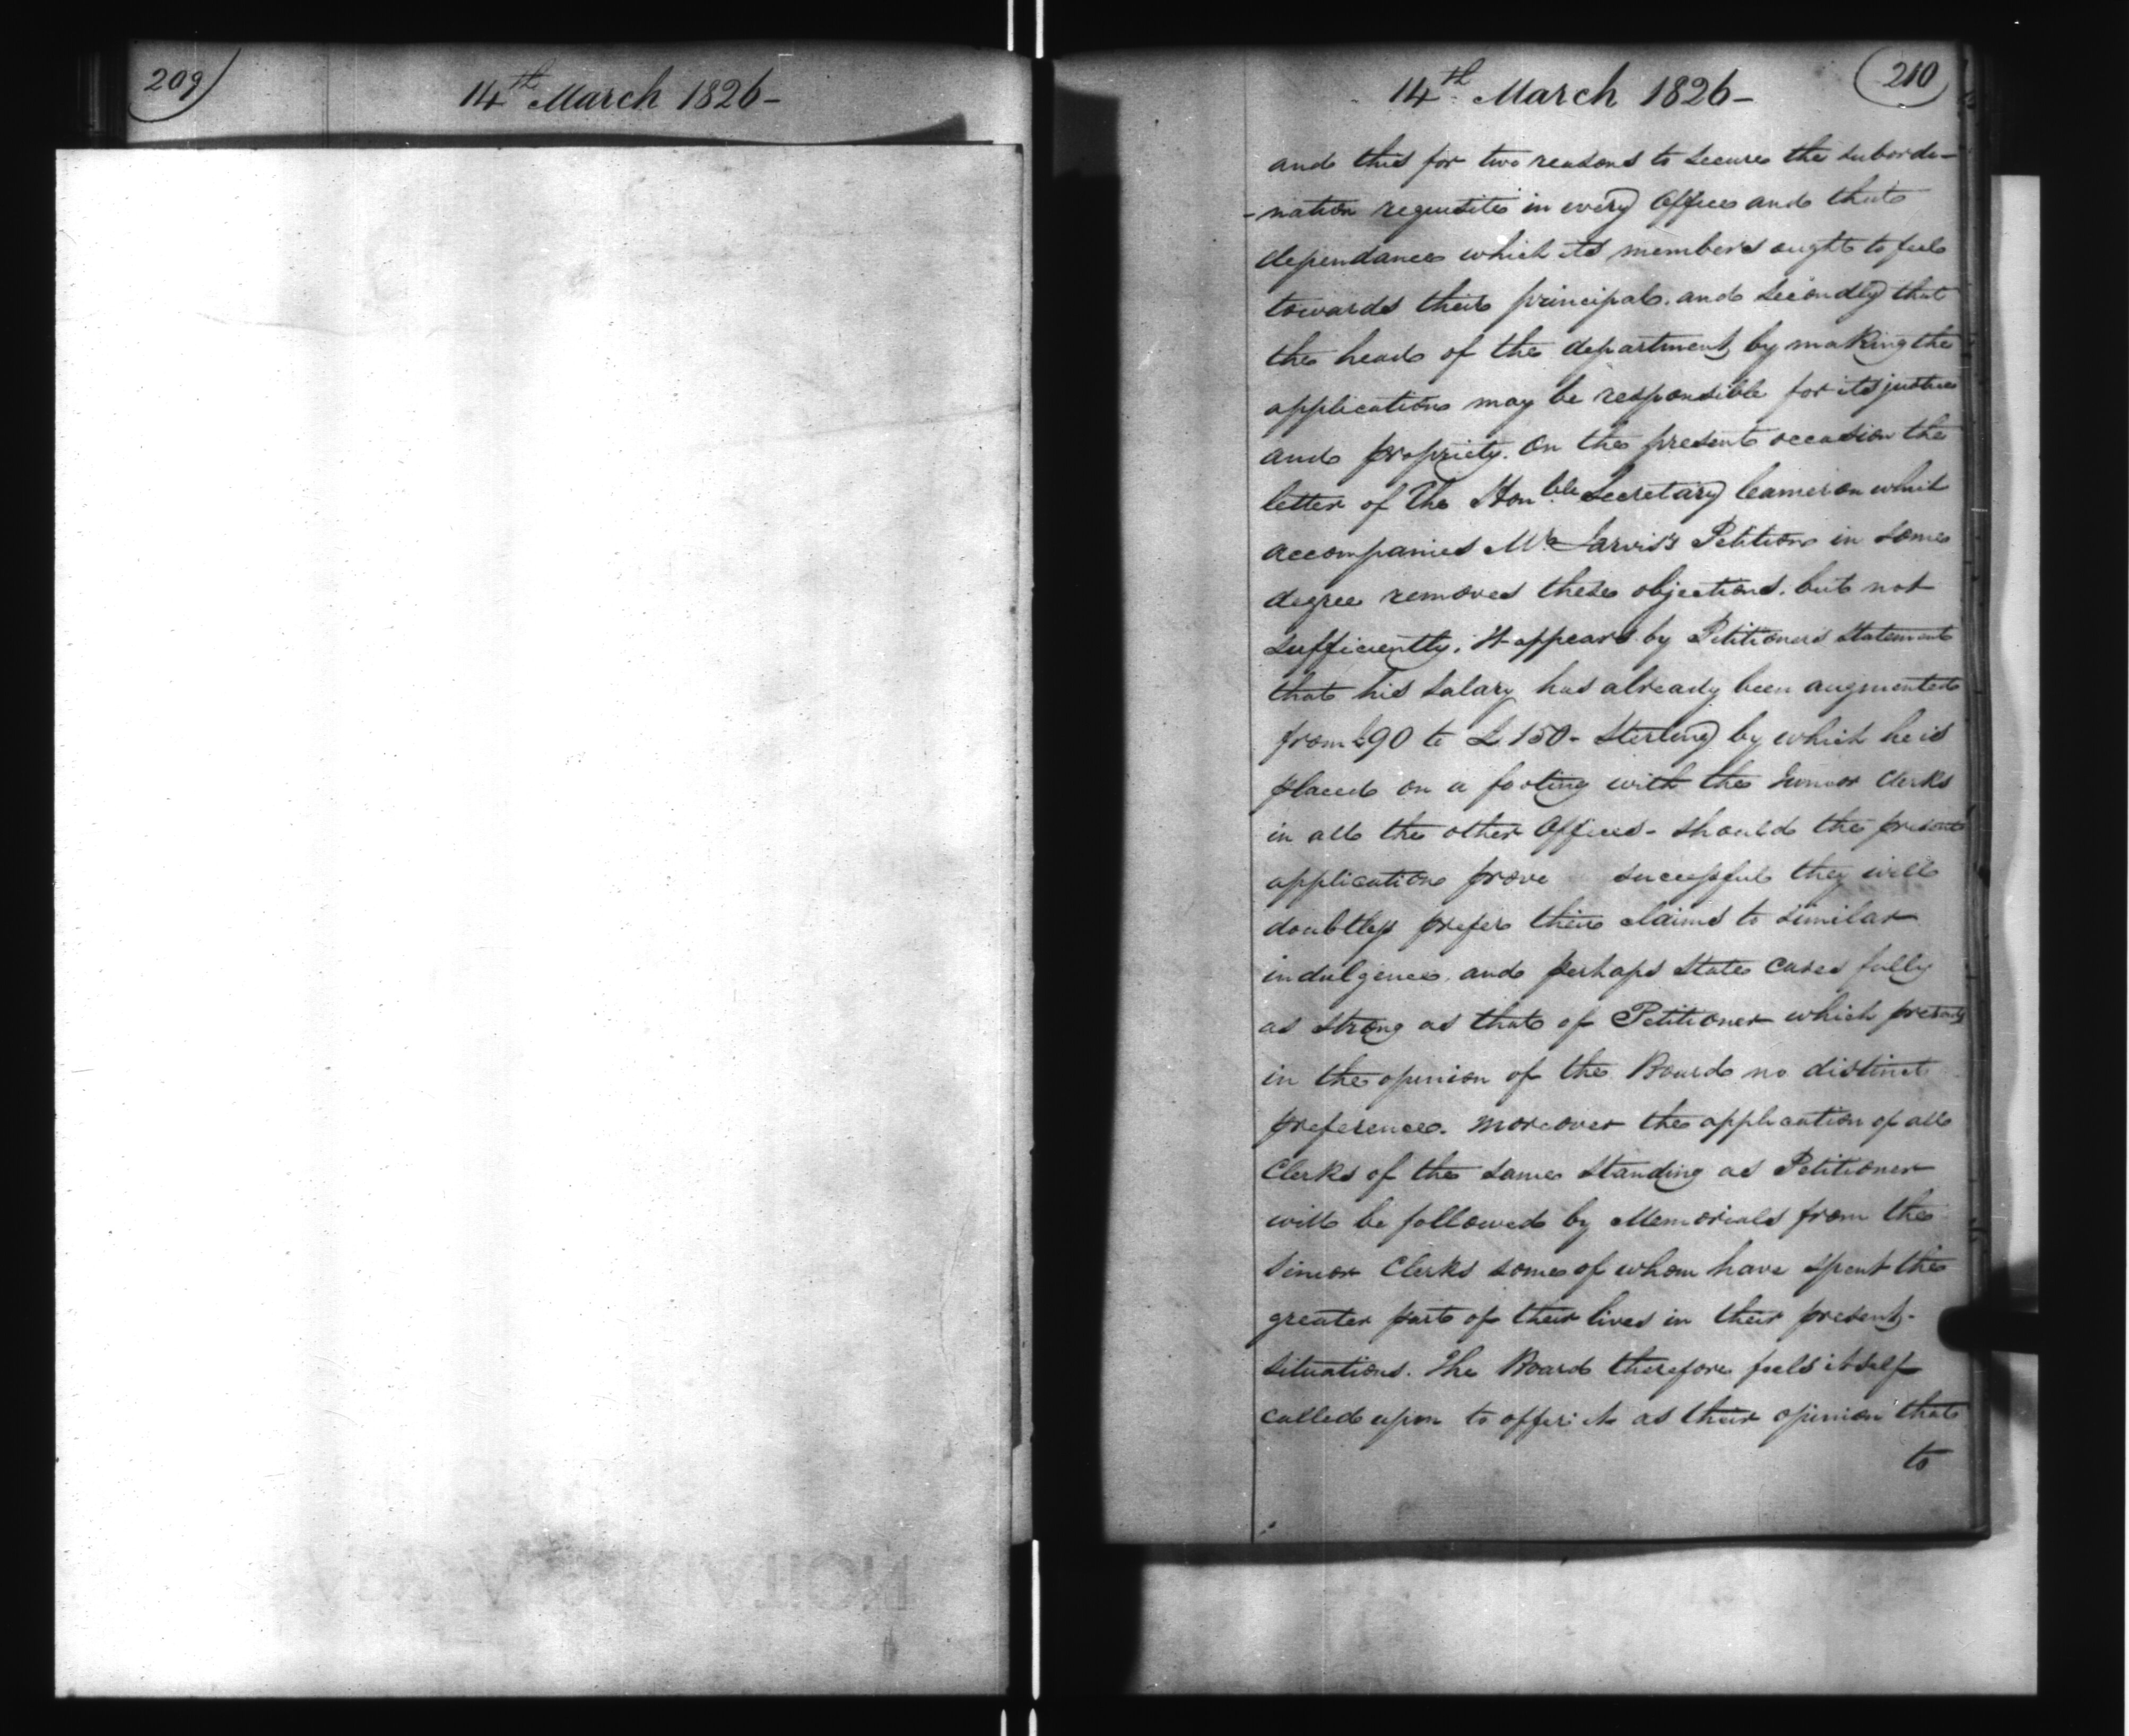 209
14th March 1826-
14th March 1826-
210
and this for two reasons to secure the subordi-
-nation requisite in every Office and that
dependance which its members ought to feel
towards their principal. and secondly that
the head of the department by making the
application may be responsible for its justice
and propriety. On the present occasion the
letter of The Honble Secretary Cameron which
accompanies Mr Jarvis's Petition in some
degree removes these objections. but not
sufficiently. It appears by Petitioners statement
that his salary has already been augmented
from £90 to £150- Sterling by which he is
placed on a footing with the Junior Clerks
in all the other Offices- should the present
application prove successful they will
doubtless prefer their claims to similar
indulgence. and perhaps state cases fully
as strong as that of Petitioner which presents
in the opinion of the Board no distinct
preference. moreover the application of all
Clerks of the same standing as Petitioner
will be followed by Memorials from the
Senior Clerks some of whom have spent the
greater part of their lives in their present-
situations. The Board therefore feels itself
called upon to offer it as their opinion that
to